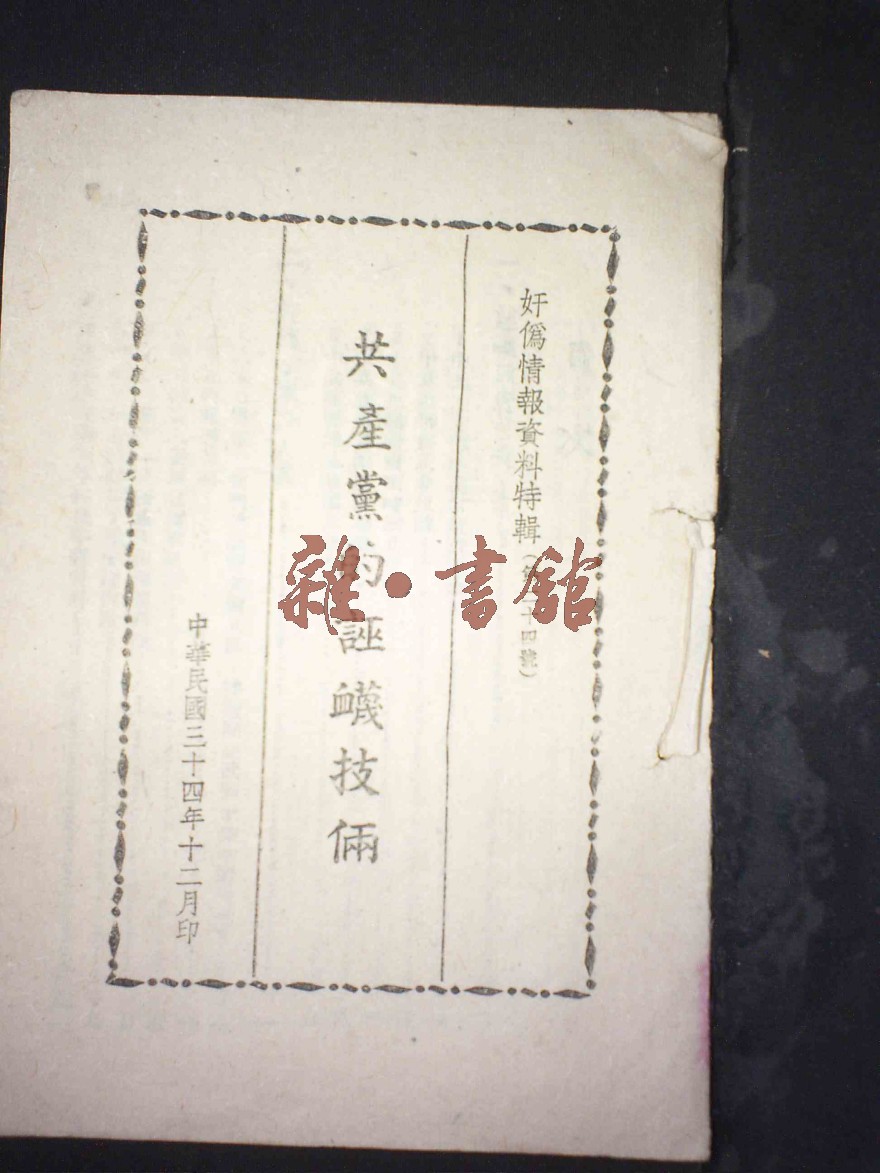 奸僞情報資料特輯(第 十四號)
共產黨的誣衊技倆
中華民國三十四年十二月印
雜·書館